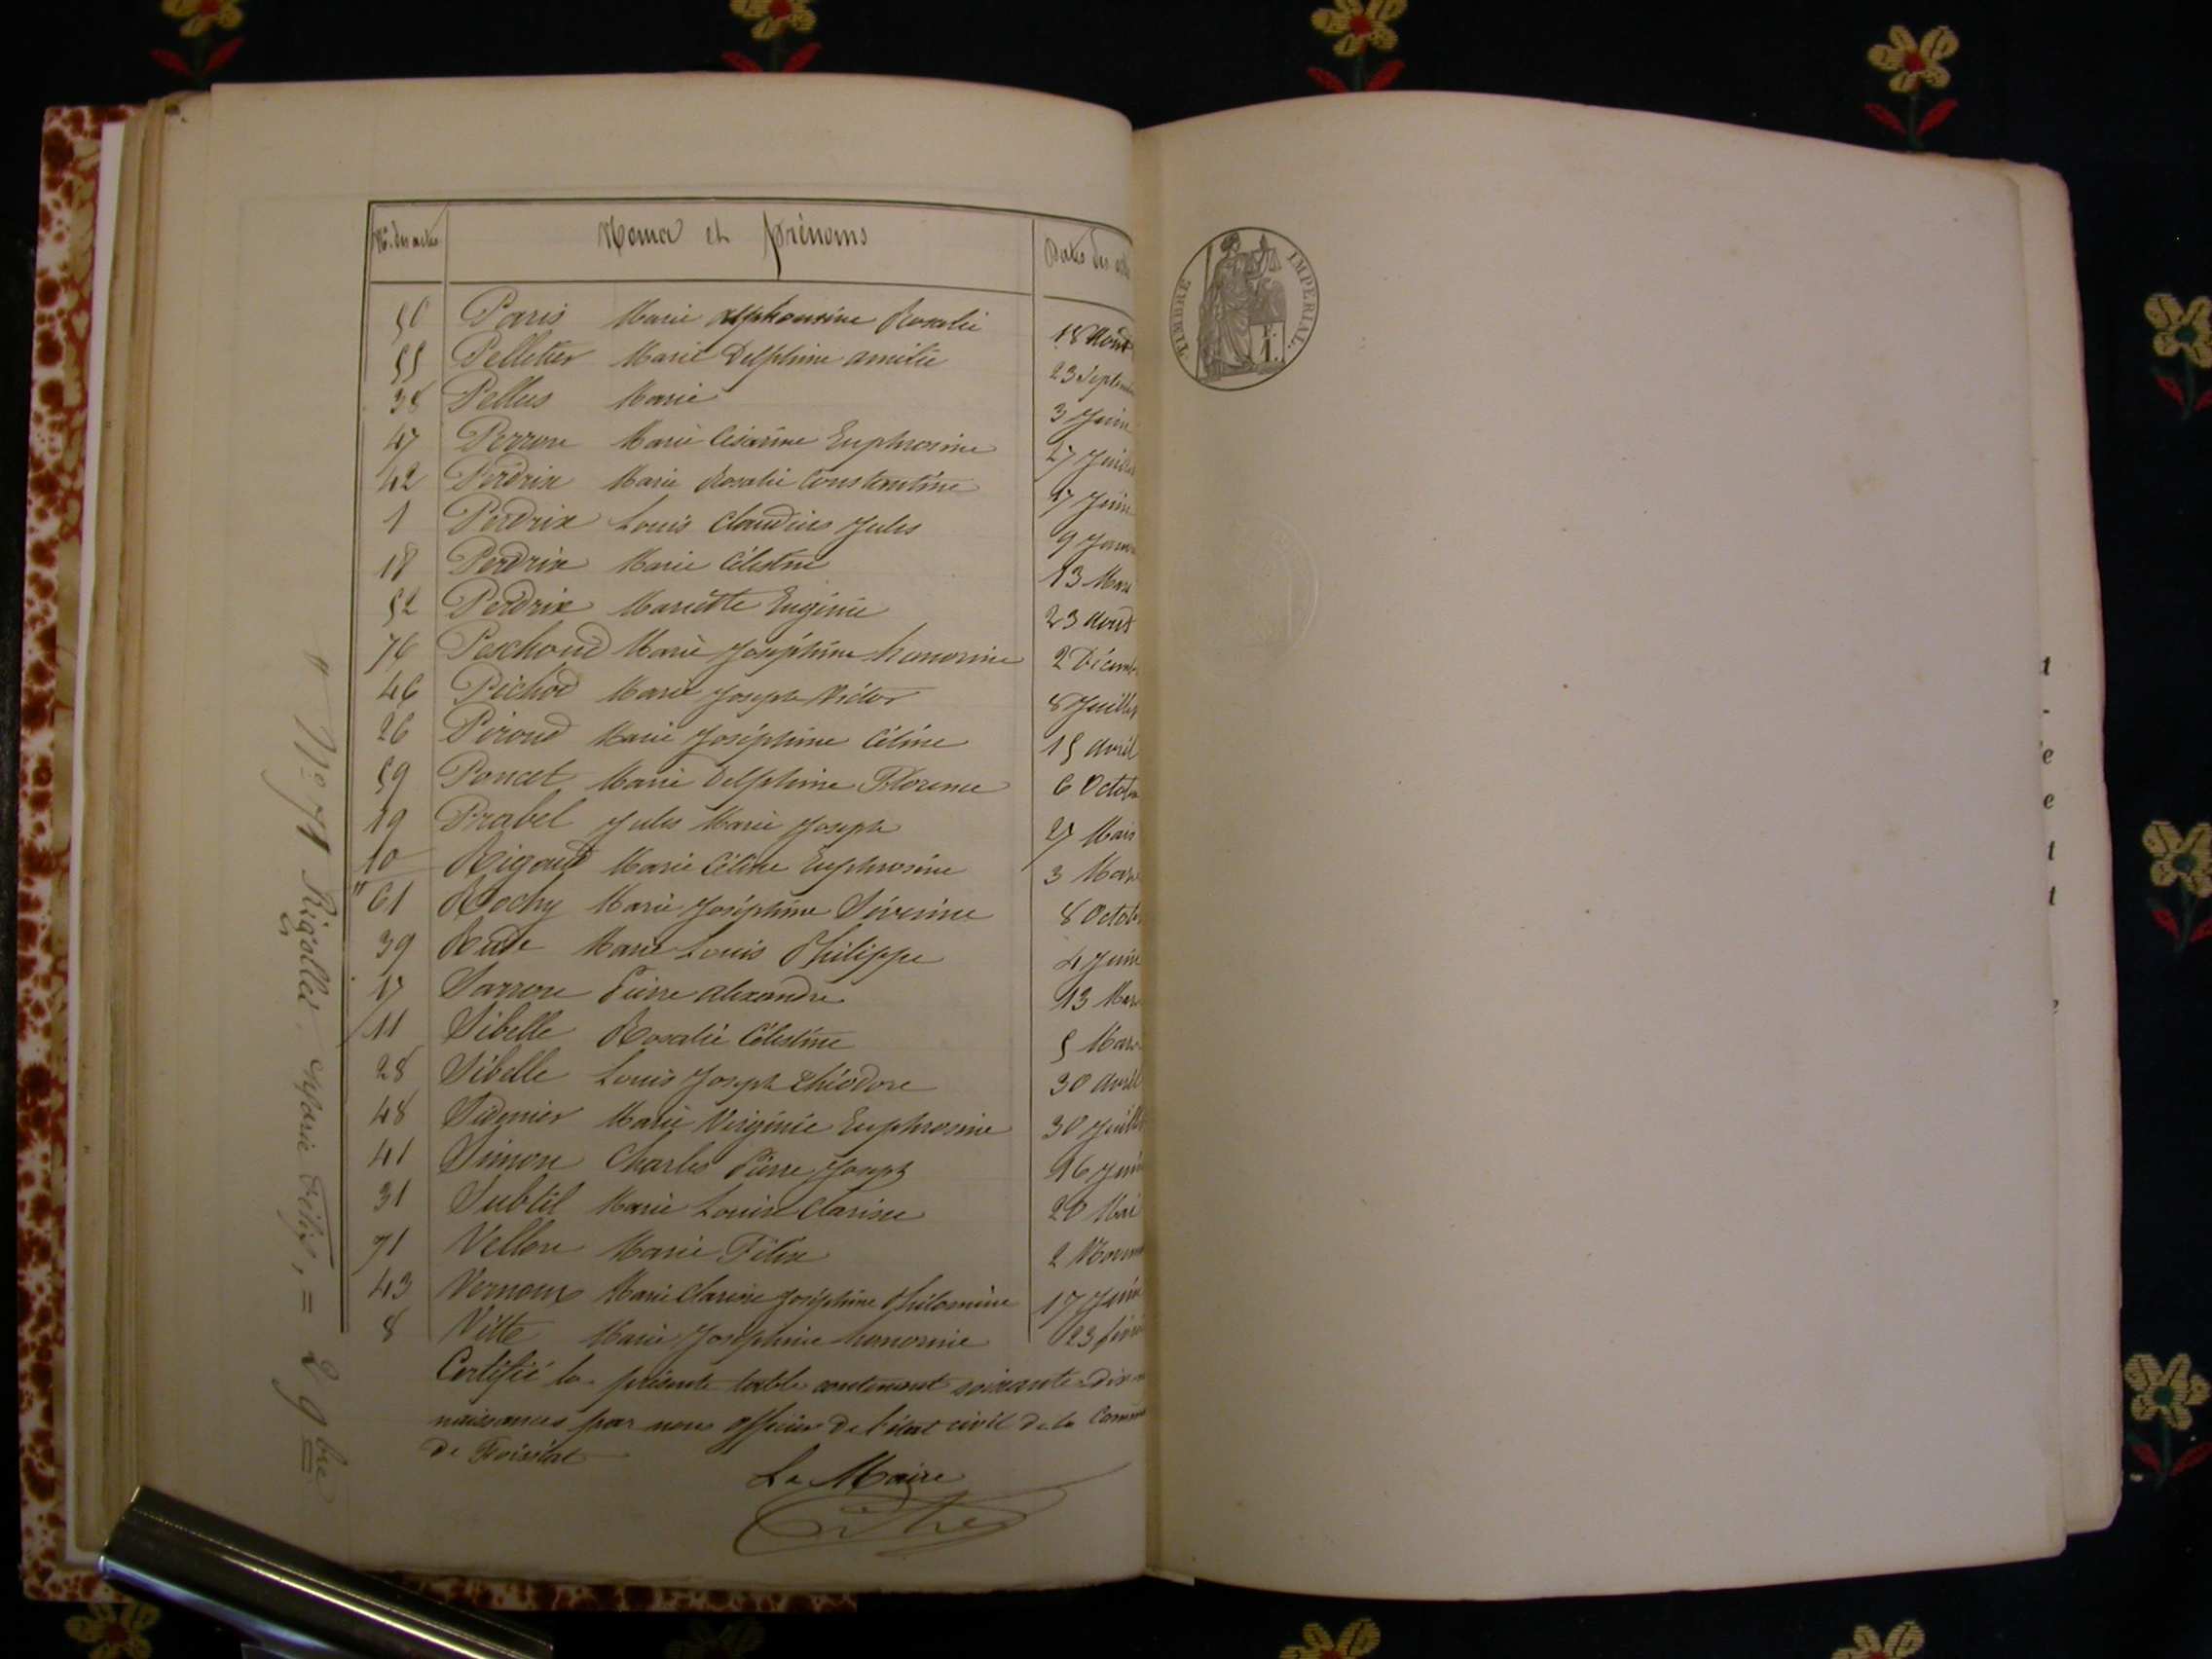 Nos. des actes Noms et Prénoms Dates des actes
50 Paris Marie Alphonsine Rosalie 18 Aout
55 Pelletier Marie Delphine Amélie 23 Septemb
38 Pellus Marie 3 Juin
47 Perron Marie Césarine Euphrosine 27 Juillet
42 Perdrix Marie Rosalie Constantine 17 Juin
1 Perdrix Louis Claudius Jules 9 Janv
18 Perdrix Marie Célestine 13 Mars
52 Perdrix Mariette Eugénie 23 Aout
76 Peschoud Marie Joséphine honorine 2 Décemb
46 Pichod Marie Joseph Victor 8 Juillet
26 Piroud Marie Joséphine Céline 15 Avril
59 Poncet Marie Delphine Florence 6 Octob
19 Prabel Jules Marie Joseph 27 Mars
10 Rigaud Marie Céline Euphrosine 3 Mars
" 61 Rochy Marie Joséphine Séverine 8 Octob
39 Rude Marie Louis Philippe 4 Juin
17 Sarron Pierre Alexandre 13 Mars
11 Sibelle Rosalie Célestine 5 Mars
28 Sibelle Louis Joseph Théodore 30 Avril
48 Marie Virginie Euphrosine 30 Juillet
41 Simon Charles Pierre Joseph 16 Juin
31 Subtil Marie Louise Clarisse 20 Mai
71 Vellon Marie Félix 2 Novem
43 Vernoux Marie Clarisse Joséphine Philomène 17 Juin
8 Vitte Marie Joséphine honorine 23 févri
Certifié la présente table contenant soixante dix
naissances par nous officier de l'état civil de la Commune
de Foissiat
Le Maire
" No 71 Rigollet, Marie Félix, = 2 9bre
TIMBRE IMPERIAL.
F.
1.